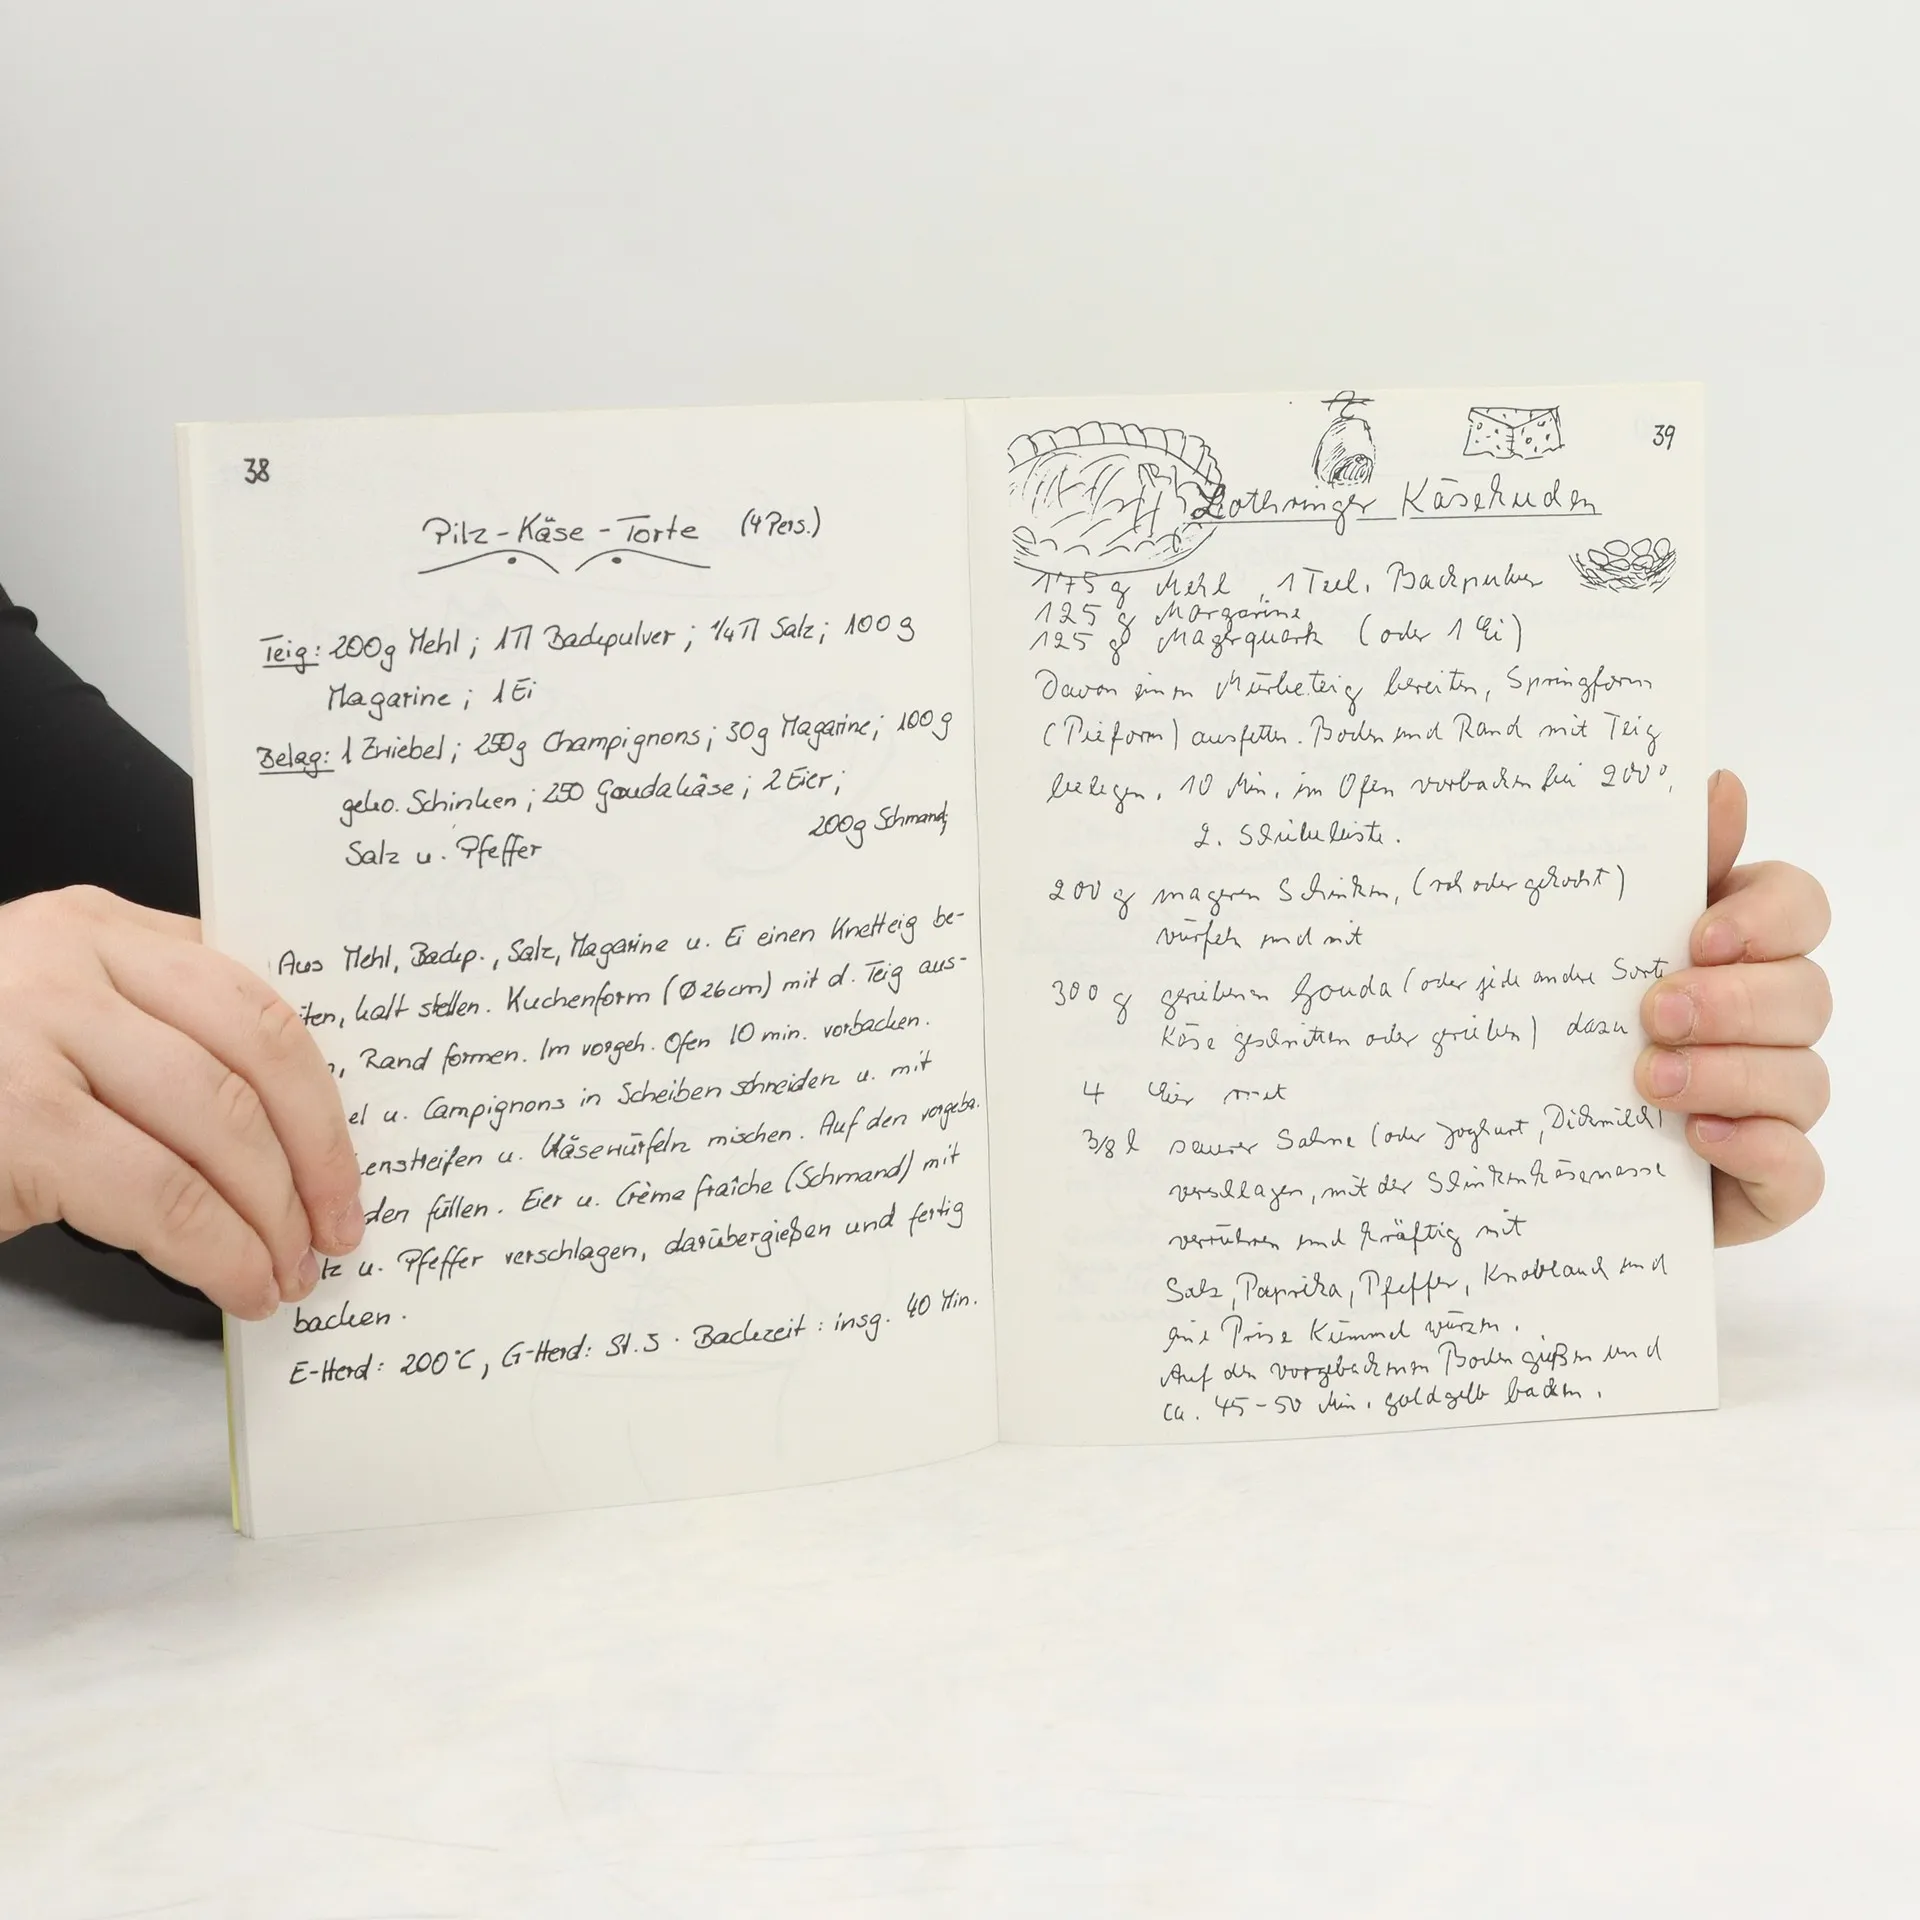 38
Pilz-Käse-Torte (4 Pers.)
Teig: 200g Mehl; 1Tl Backpulver; 1/4 Tl Salz; 100g
Magarine; 1 Ei
Belag: 1 Zwiebel; 250g Champignons; 30g Magarine; 100g
geko. Schinken; 250 Goudakäse; 2 Eier;
200g Schmand;
Salz u. Pfeffer
Aus Mehl, Backp., Salz, Magarine u. Ei einen Knetteig be-
iten, kalt stellen. Kuchenform (Ø 26cm) mit d. Teig aus-
n, Rand formen. Im vorgeh. Ofen 10 min. vorbacken.
el u. Campignons in Scheiben schneiden u. mit
enstreifen u. Käsewürfeln mischen. Auf den vorgeba.
den füllen. Eier u. Crème fraîche (Schmand) mit
lz u. Pfeffer verschlagen, darübergießen und fertig
backen.
E-Herd: 200°C, G-Herd: St. 3 . Backzeit: insg. 40 Min.
39
Lothringer Käsekuchen
175 g Mehl, 1 Teel. Backpulver
125 g Margarine
125 g Magerquark (oder 1 Ei)
Davon einen Mürbeteig bereiten, Springform
(Pieform) ausfetten. Boden und Rand mit Teig
belegen, 10 Min. im Ofen vorbacken bei 200°,
2. Schubleiste.
200 g mageren Schinken, (roh oder gekocht)
würfeln und mit
300 g geriebenen Gouda (oder jede andere Sorte
Käse geschnitten oder gerieben) dazu
4 Eier mit
3/8 l saurer Sahne (oder Joghurt, Dickmilch)
verschlagen, mit der Schinkenkäsemasse
verrühren und kräftig mit
Salz, Paprika, Pfeffer, Knoblauch und
eine Prise Kümmel würzen.
Auf den vorgebackenen Boden gießen und
ca. 45-50 Min. goldgelb backen.